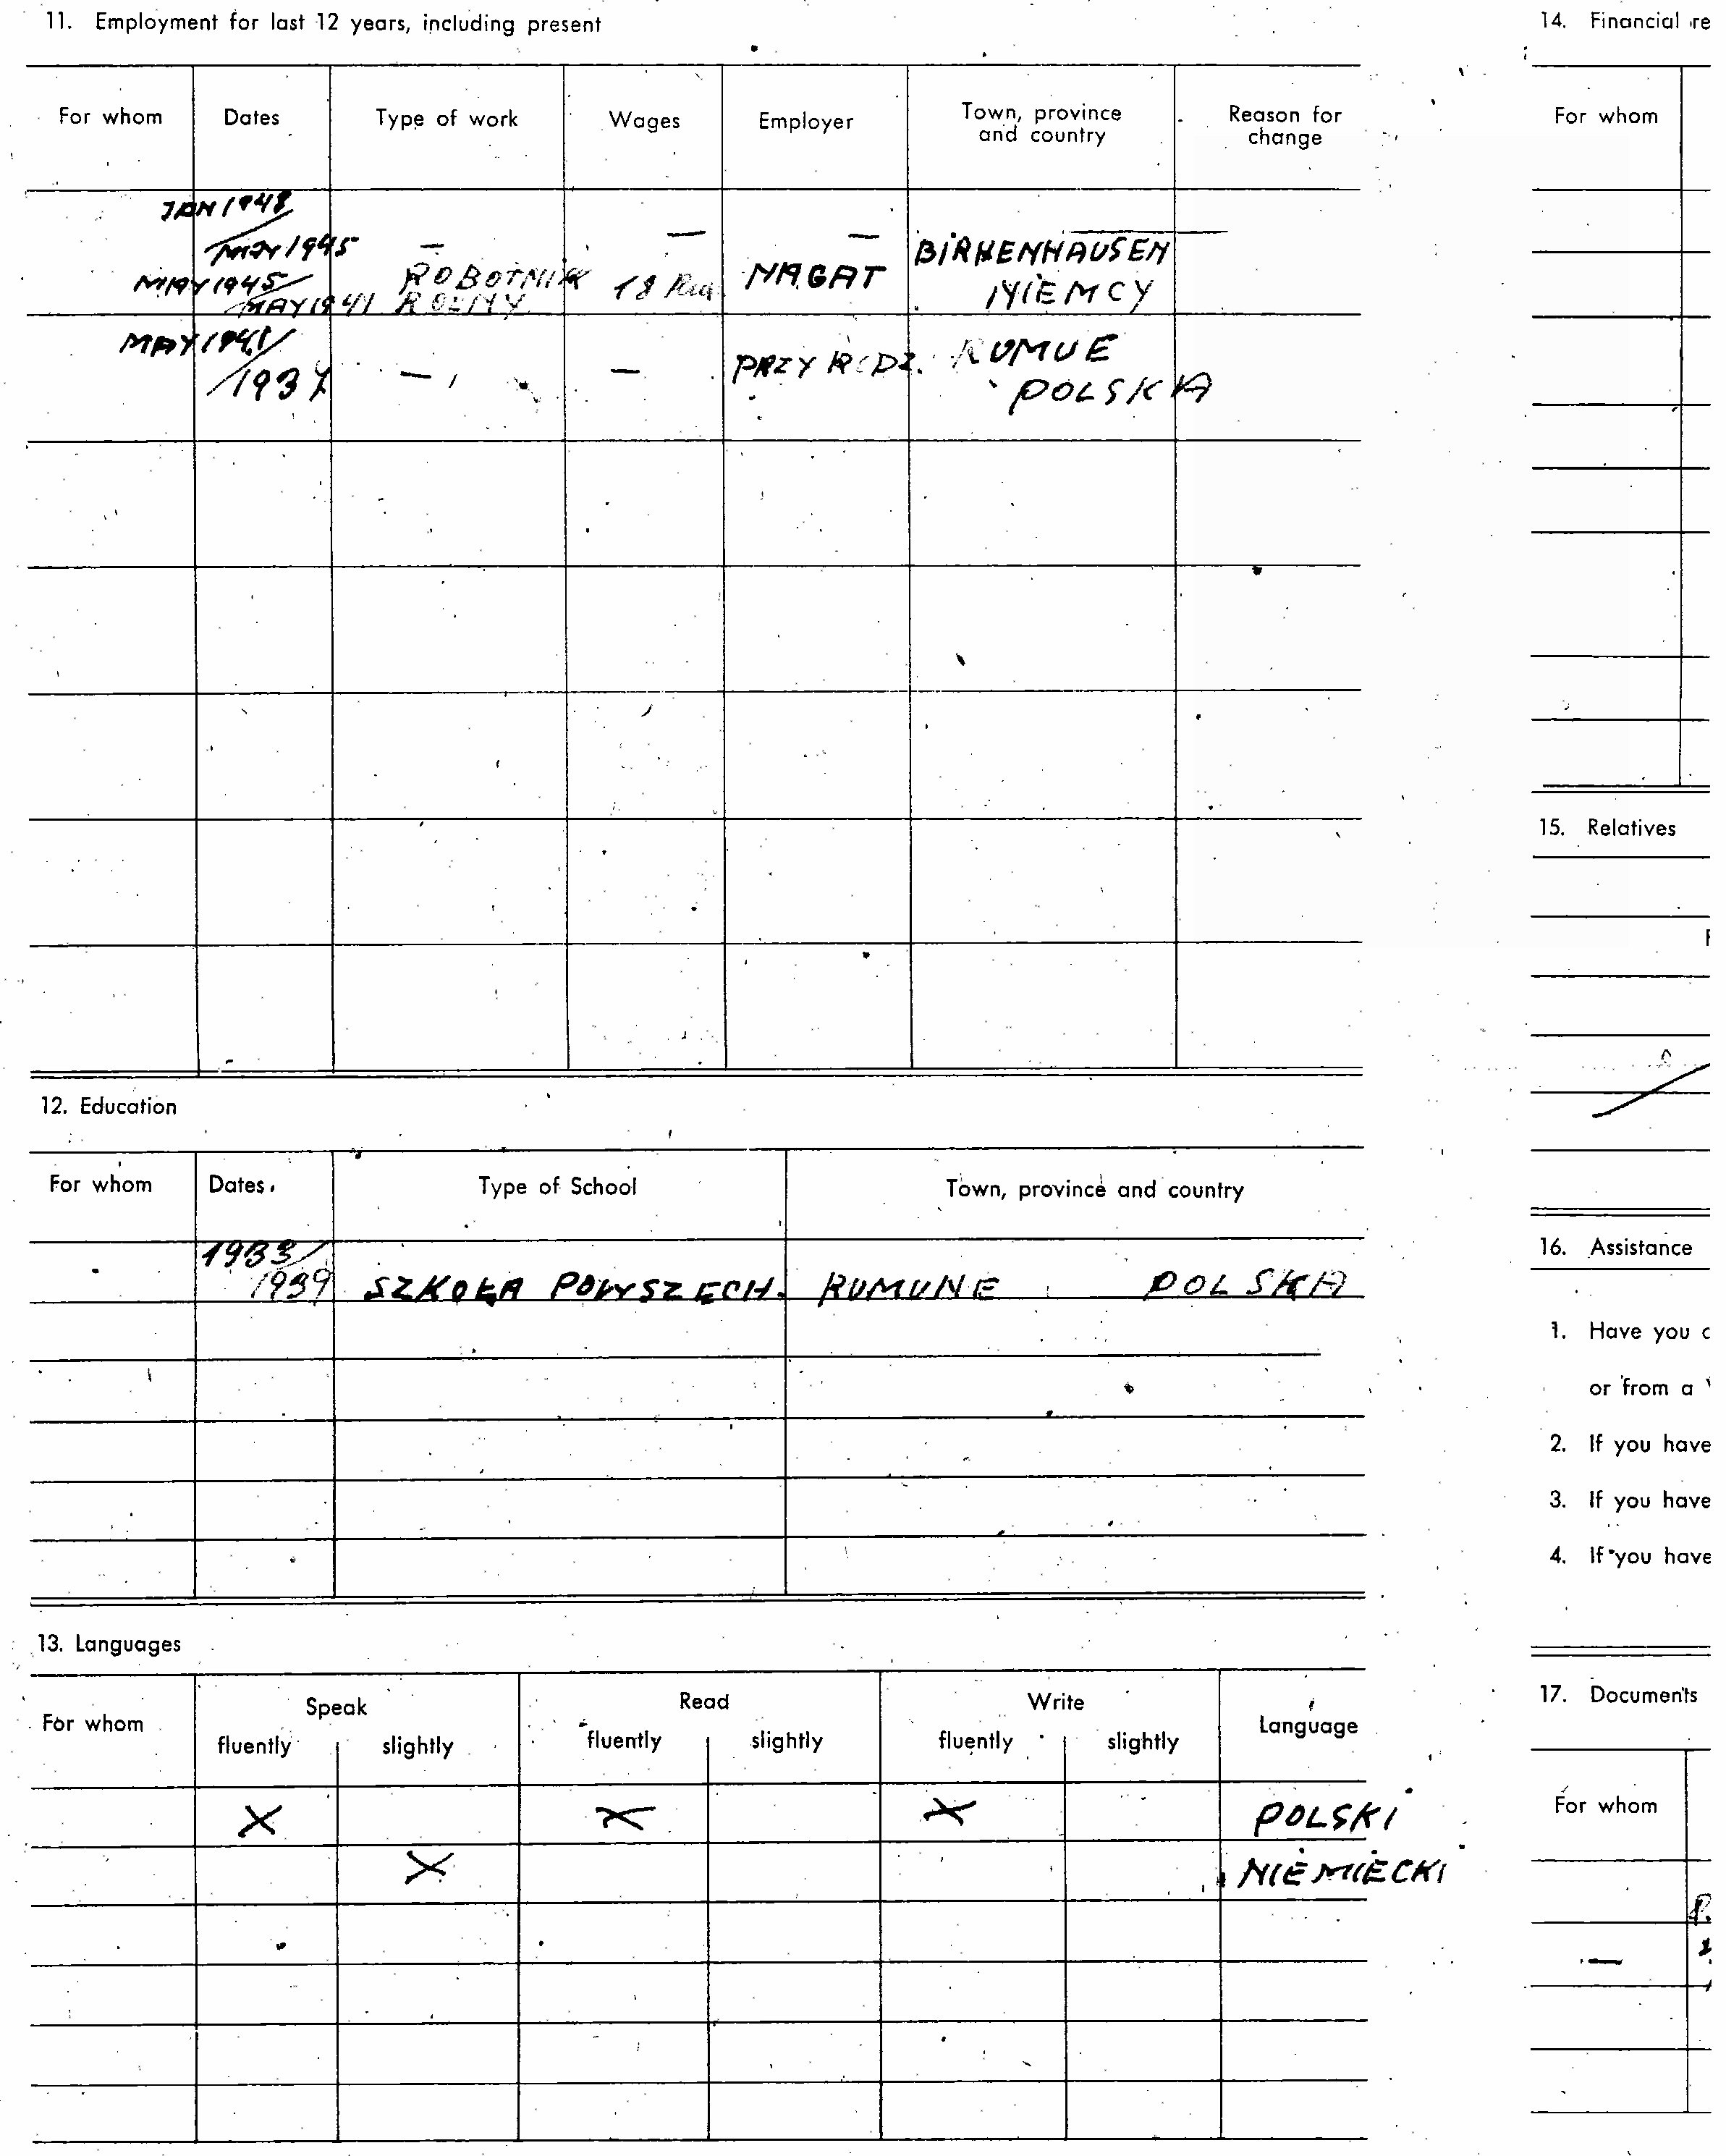 11. Employment for last 12 years, including present
For whom Dates Type of work Wages Employer Town, province and country Reason for change
JAN 1948
MAY 1945 — — — BIRKENHAUSEN
MAY 1945 ROBOTNIK 18 NAGAT NIEMCY
MAY 1941 ROLNY
MAY 1941
1937 — — PRZY RODZ. RUMUE
POLSKA
12. Education
For whom Dates Type of School Town, province and country
1933/
1939 SZKOŁA POWSZECH. RUMUNE POLSKA
13. Languages
For whom Speak Read Write Language
fluently slightly fluently slightly fluently slightly
X X X POLSKI
X NIEMIECKI
14. Financial re
For whom
15. Relatives
16. Assistance
1. Have you
or from a
2. If you have
3. If you have
4. If you have
17. Documents
For whom
—